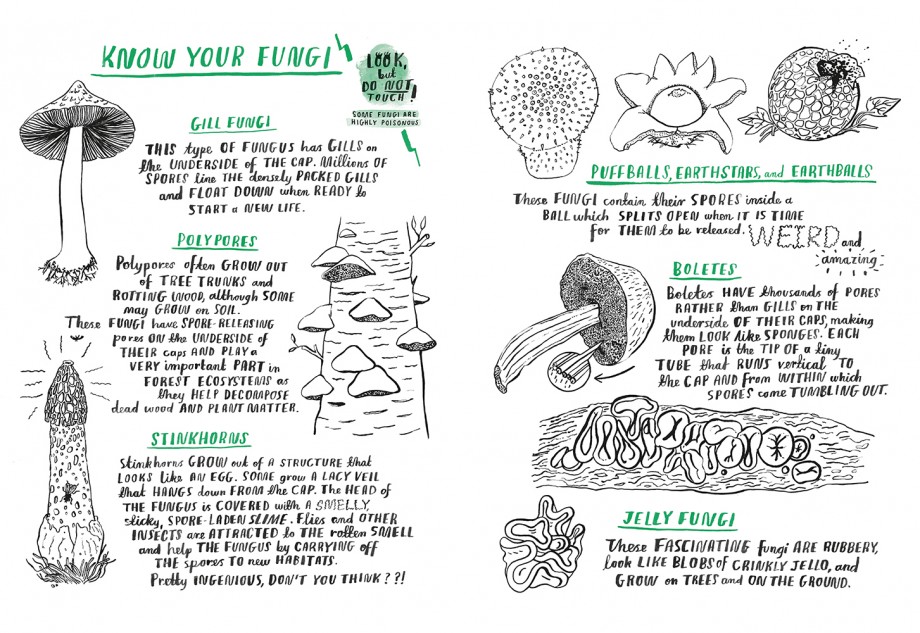 KNOW YOUR FUNGI
LOOK,
but
DO NOT
TOUCH!
SOME FUNGI ARE
HIGHLY POISONOUS
GILL FUNGI
THIS type OF FUNGUS has GILLS on
the UNDERSIDE OF THE CAP. Millions OF
SPORES line THE densely PACKED GILLS
and FLOAT DOWN when READY to
START a NEW LIFE.
POLYPORES
Polypores often GROW OUT
of TREE TRUNKS and
ROTTING WOOD, although SOME
may GROW on SOIL.
These FUNGI have SPORE-RELEASING
pores ON the UNDERSIDE OF
THEIR caps AND PLAY a
VERY important PART in
FOREST ECOSYSTEMS as
they HELP DECOMPOSE
dead wood AND PLANT MATTER.
STINKHORNS
Stinkhorns GROW out of A STRUCTURE that
LOOKS like AN EGG. SOME grow A LACY VEIL
that HANGS down FROM the CAP. The HEAD of
THE FUNGUS is COVERED with A SMELLY,
sticky, SPORE-LADEN SLIME. Flies and OTHER
INSECTS are ATTRACTED to THE rotten SMELL
and help THE FUNGUS by CARRYING off
THE spores TO new HABITATS.
Pretty INGENIOUS, DON'T YOU THINK??!
PUFFBALLS, EARTHSTARS, and EARTHBALLS
These FUNGI contain their SPORES inside a
BALL which SPLITS OPEN when IT IS TIME
for THEM to be released. WEIRD and
amazing
BOLETES
Boletes HAVE thousands of PORES
RATHER than GILLS on THE
underside OF THEIR CAPS, making
them LOOK like SPONGES. EACH
PORE is the TIP OF a tiny
TUBE that RUNS vertical TO
the CAP AND from WITHIN which
SPORES come TUMBLING OUT.
JELLY FUNGI
These FASCINATING fungi ARE RUBBERY,
look LIKE BLOBS of CRINKLY JELLO, and
GROW on TREES and ON THE GROUND.